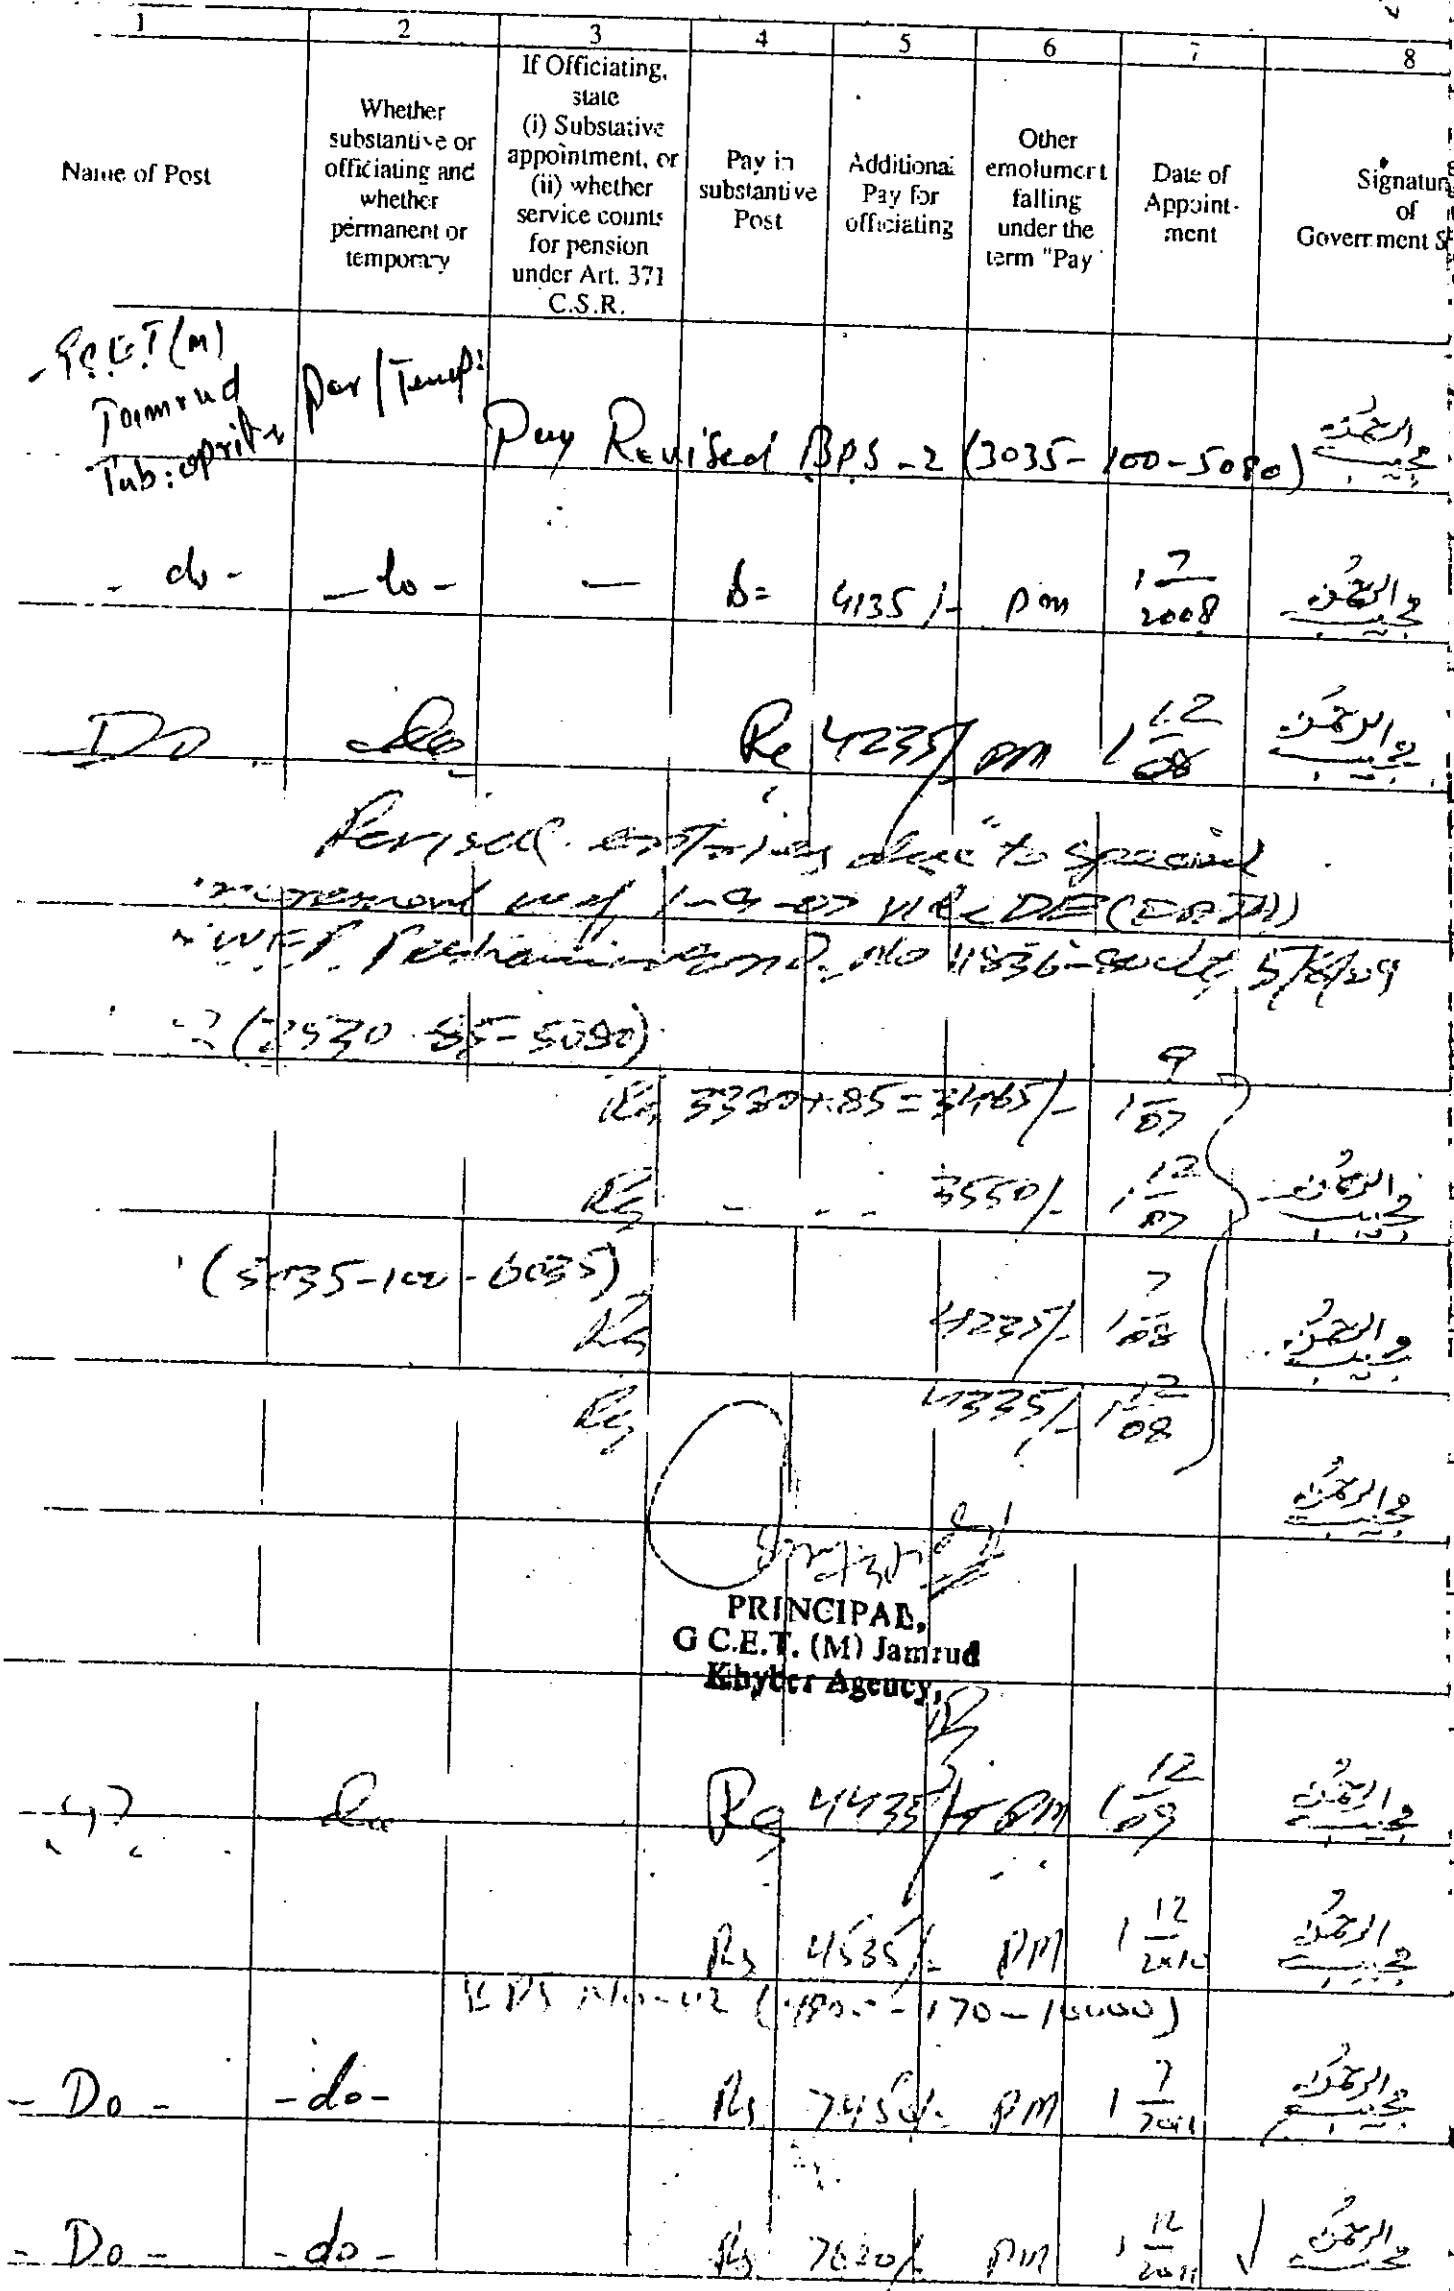 1 2 3 4 5 6 7 8
Name of Post
Whether substantive or officiating and whether permanent or temporary
If Officiating, state (i) Substative appointment, or (ii) whether service counts for pension under Art. 371 C.S.R.
Pay in substantive Post
Additional Pay for officiating
Other emolument falling under the term "Pay
Date of Appoint-ment
Signatur of Government S
(M)
Per/Temp:
Pay Revised BPS-2 (3035-100-5080) مجیب الرحمن
- do - - do - — 4135/- pm 1 7/2008 مجیب الرحمن
Do do Rs 4235/ pm 1 12/08 مجیب الرحمن
Revised entries due to special
increment wef 1-9-07 vide DE
-85-5080)
Rs 3380+85=3465/- 1 9/07
Rs - - - 3550/- 1 12/07 مجیب الرحمن
(3035-100-6035)
Rs 4235/- 1 7/08 مجیب الرحمن
Rs 4335/- 1 12/08
مجیب الرحمن
PRINCIPAL,
G C.E.T. (M) Jamrud
Khyber Agency,
do Rs 4435/- PM 1 12/09 مجیب الرحمن
Rs 4535/- PM 1 12/2010 مجیب الرحمن
-170-10000)
- Do - - do - Rs 7450/- PM 1 7/2011 مجیب الرحمن
- Do - - do - Rs 7620/- PM 1 12/2011 مجیب الرحمن